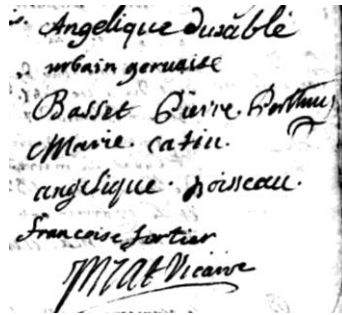 Angelique durablé
urbain gervaise
Basset Pierre. Berthus
Marie. catin.
angelique. poisseau.
francoise fortier
Vicaire